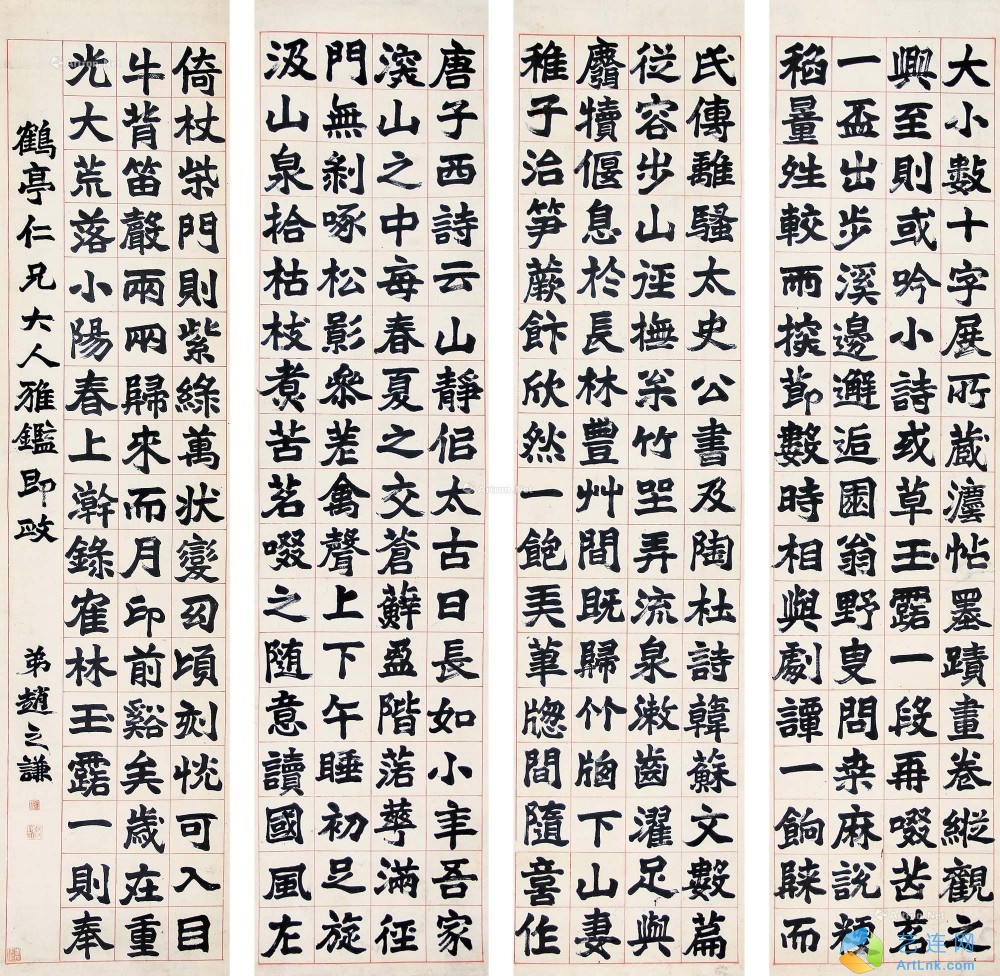 唐子西詩云山靜侣太古日長如小年吾家
深山之中每春夏之交蒼蘚盈階落華滿徑
門無剥啄松影參差禽聲上下午睡初足旋
汲山泉拾枯枝煑苦茗啜之随意讀國風左
氏傳離騷太史公書及陶杜詩韓蘇文數篇
從容步山徑撫松竹坐弄流泉漱齒濯足與
麛犢偃息於長林豐艸間既歸竹牕下山妻
稚子治笋蕨飰欣然一飽弄筆牕間隨意作
大小數十字展所藏灋帖墨蹟畫卷縱觀之
興至則或吟小詩或草玉露一段再啜苦茗
一盃出步溪邊邂逅園翁野叟問桒麻說粳
稻量姓較雨探節數時相與劇譚一餉歸而
倚杖柴門則紫綠萬狀變幻頃刻怳可入目
牛背笛聲兩兩歸來而月印前谿矣歲在重
光大荒落小陽春上澣錄寉林玉露一則奉
鶴亭仁兄大人雅鑑即政
弟趙之謙
艺连网
ArtLnk.com